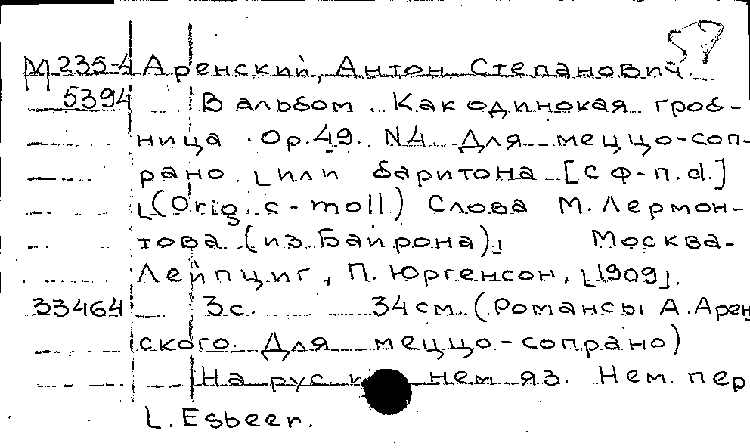 М235-4 Аренский, Антон Степанович
5394 В альбом. Как одинокая гроб-
ница. Ор. 49. N4. Для меццо-соп-
рано ⌊или баритона [с ф-п.d.]
⌊(Orig. c-moll) Слова М. Лермон-
това (из Байрона)⌋ Москва-
Лейпциг, П. Юргенсон, ⌊1909⌋.
33464 3с. 34см. (Романсы А. Арен
ского. Для меццо-сопрано)
На рус нем яз. Нем. пер
L. Esbeer.